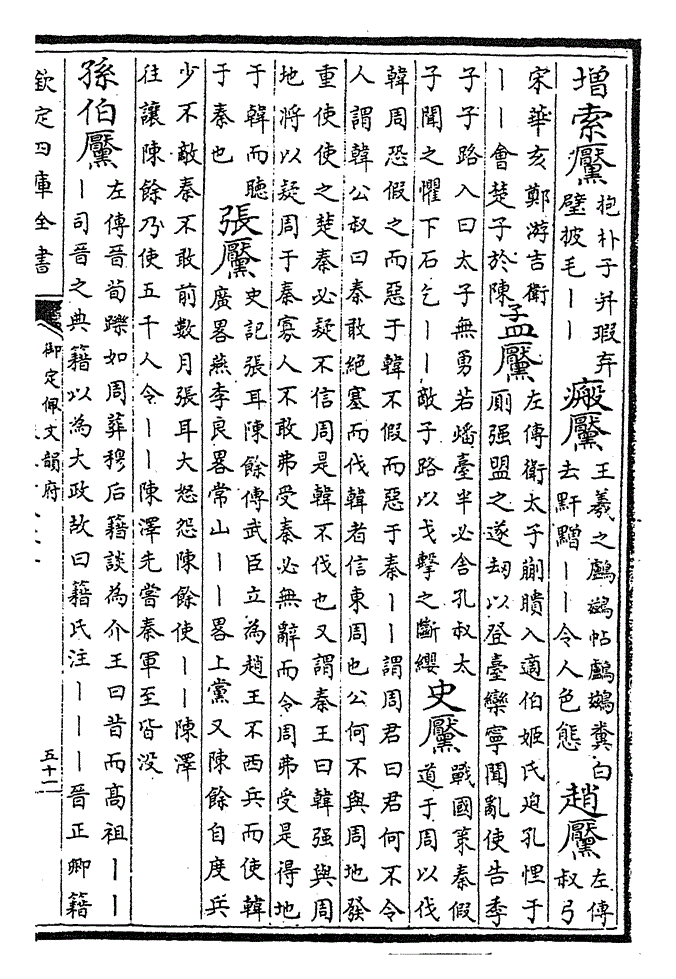 增索黶 抱朴子并瑕弃
璧披毛丨丨
瘢黶 王羲之鸕鷀帖鸕鷀糞白
去䵟黯丨丨令人色態
趙黶 左傳
叔弓
宋華亥鄭游吉衛
丨丨會楚子於陳
孟黶 左傳衛太子蒯聵入適伯姬氏迫孔悝于
厠强盟之遂刼以登臺欒寧聞亂使告季
子子路入曰太子無勇若燔臺半必舍孔叔太
子聞之懼下石乞丨丨敵子路以戈擊之斷纓
史黶 戰國策秦假
道于周以伐
韓周恐假之而惡于韓不假而惡于秦丨丨謂周君曰君何不令
人謂韓公叔曰秦敢絶塞而伐韓者信東周也公何不與周地發
重使使之楚秦必疑不信周是韓不伐也又謂秦王曰韓强與周
地將以疑周于秦寡人不敢弗受秦必無辭而令周弗受是得地
于韓而聽
于秦也
張黶 史記張耳陳餘傳武臣立為趙王不西兵而使韓
廣畧燕李良畧常山丨丨畧上黨又陳餘自度兵
少不敵秦不敢前數月張耳大怒怨陳餘使丨丨陳澤
往讓陳餘乃使五千人令丨丨陳澤先嘗秦軍至皆没
孫伯黶 左傳晉荀躒如周葬穆后籍談為介王曰昔而高祖丨丨
丨司晉之典籍以為大政故曰籍氏注丨丨丨晉正卿籍
欽定四庫全書
御定佩文韻府
五十一